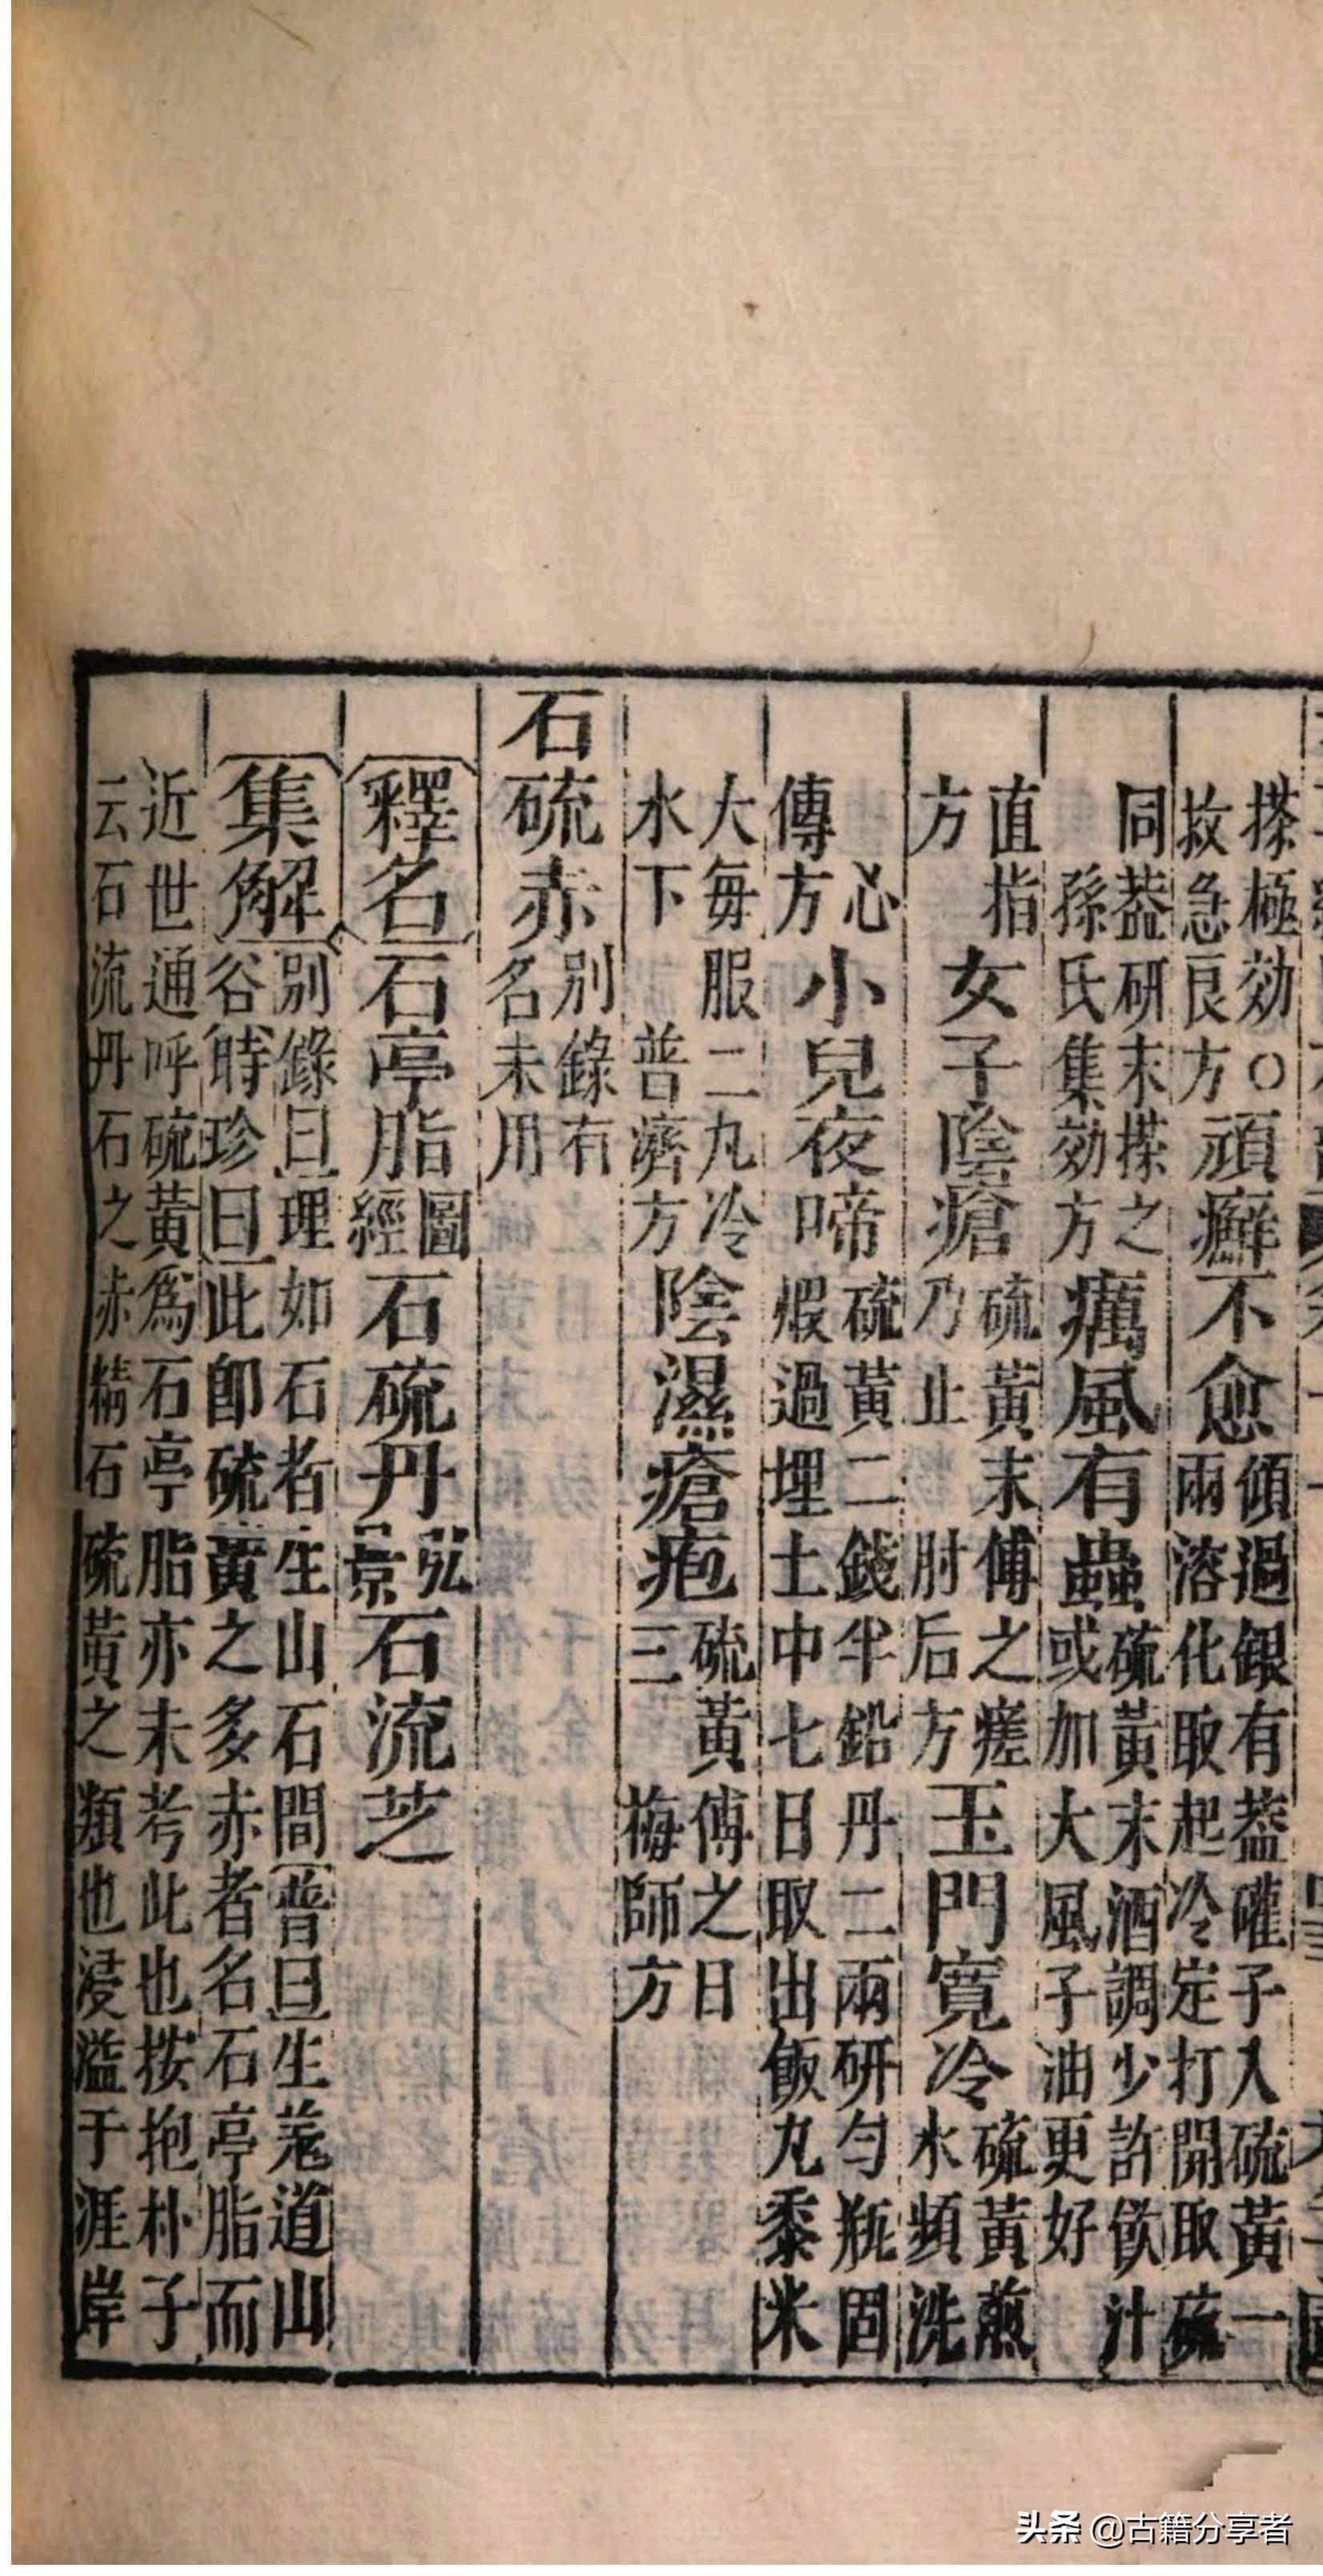 搽極効○救急良方頑癬不愈傾過銀有葢礶子入硫黃一兩溶化取起冷定打開取硫
同葢研末搽之孫氏集効方癘風有蟲硫黃末酒調少許飲汁或加大風子油更好
直指方女子陰瘡硫黃末傅之瘥乃止肘后方玉門寬冷硫黃煎水頻洗
心傳方小兒夜啼硫黃二錢半鉛丹二兩研勻瓶固煆過埋土中七日取出飯丸黍米
大每服二丸冷水下普濟方陰濕瘡疱硫黃傅之日三梅師方
石硫赤別錄有名未用
釋名石亭脂圖經石硫丹弘景石流芝
集解別錄曰理如石者生山石間普曰生羗道山谷時珍曰此卽硫黃之多赤者名石亭脂而
近世通呼硫黃爲石亭脂亦未考此也按抱朴子云石流丹石之赤精石硫黃之類也浸溢于涯岸
头条 @古籍分享者